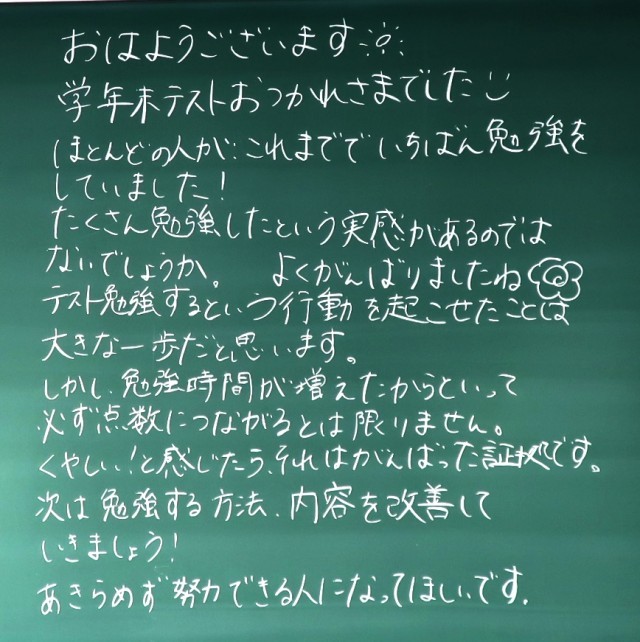 おはようございます
学年末テストおつかれさまでした
ほとんどの人が、これまででいちばん勉強を
していました！
たくさん勉強したという実感があるのでは
ないでしょうか。 よくがんばりましたね
テスト勉強するという行動を起こせたことは
大きな一歩だと思います。
しかし、勉強時間が増えたからといって
必ず点数につながるとは限りません。
くやしい！と感じたら、それはがんばった証拠です。
次は勉強する方法、内容を改善して
いきましょう！
あきらめず努力できる人になってほしいです。